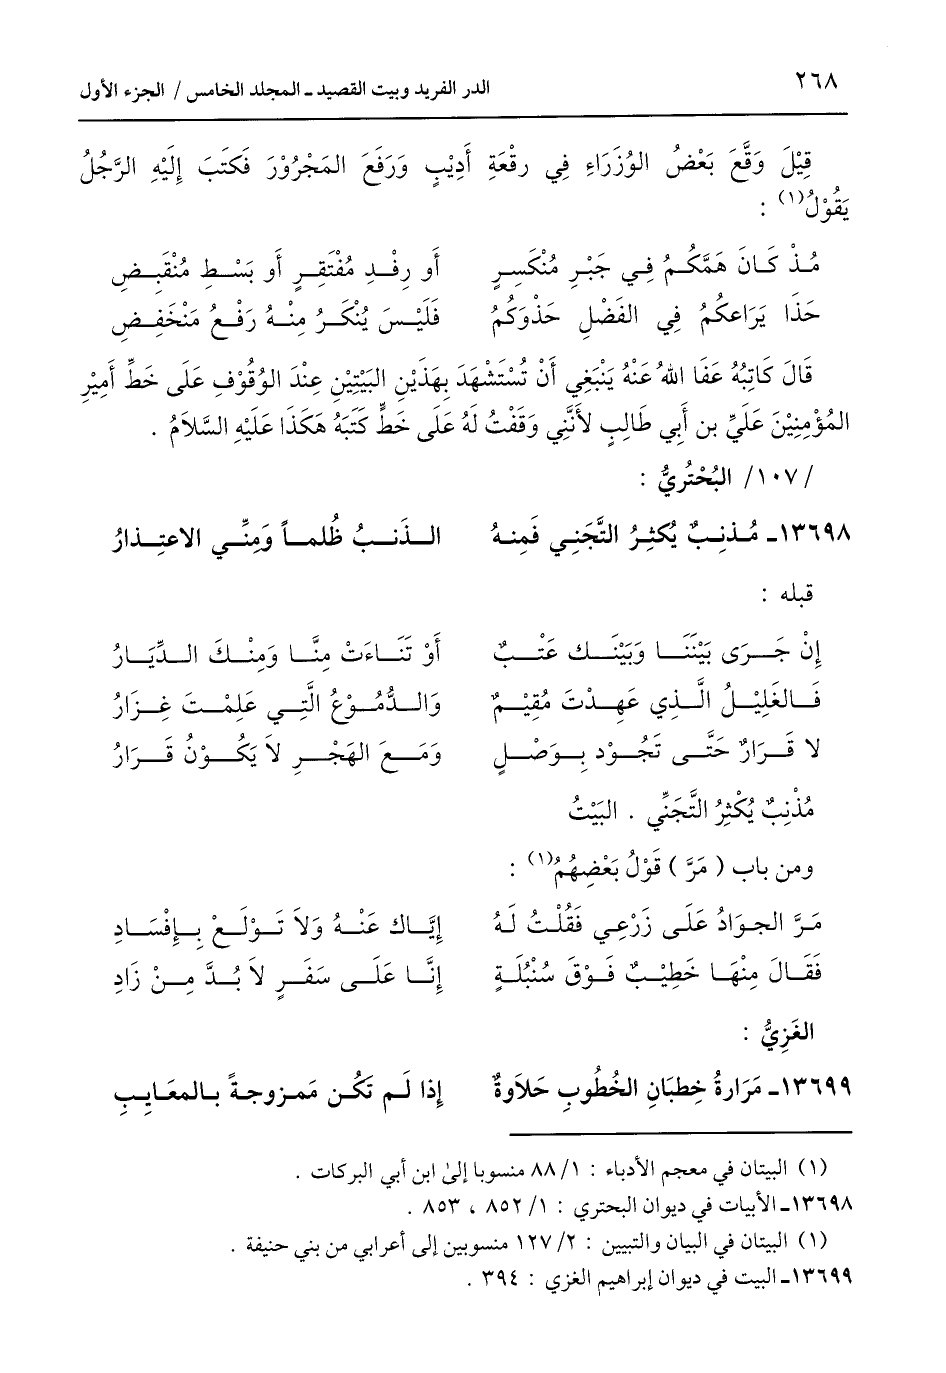 ٢٦٨ الدر الفريد وبيت القصيد ـ المجلد الخامس / الجزء الأول
قِيْلَ وَقَّعَ بَعْضُ الوُزَرَاءِ فِي رِقْعَةِ أَدِيْبٍ وَرَفَعَ المَجْرُوْرَ فَكَتَبَ إِلَيْهِ الرَّجُلُ
يَقُوْلُ(١) :
مُذْ كَانَ هَمَّكُمُ فِي جَبْرِ مُنْكَسِرٍ أو رِفْدِ مُفْتَقِرٍ أو بَسْطِ مُنْقَبِضِ
حَذَا يَرَاعكُمُ فِي الفَضْلِ حَذْوَكُمُ فَلَيْسَ يُنْكَرُ مِنْهُ رَفْعُ مَنْخَفِضِ
قَالَ كَاتِبُهُ عَفَا اللهُ عَنْهُ يَنْبَغِي أَنْ تُسْتَشْهَدَ بِهَذَيْنِ البَيْتَيْنِ عِنْدَ الوُقُوْفِ عَلَى خَطِّ أَمِيْرِ
المُؤْمِنِيْنَ عَلَيِّ بن أَبِي طَالِبٍ لأَنَّنِي وَقَفْتُ لَهُ عَلَى خَطٍّ كَتَبَهُ هَكَذَا عَلَيْهِ السَّلاَمُ .
/١٠٧/ البُحْتُرِيُّ :
١٣٦٩٨ـ مُذنِبٌ يُكثِرُ التَّجَنِي فَمِنهُ الذَنبُ ظُلماً وَمِنِّي الاعتِذارُ
قبله :
إِنْ جَرَى بَيْنَنَا وَبَيْنَك عَتْبٌ أَوْ تَنَاءَتْ مِنَّا وَمِنْكَ الدِّيَارُ
فَالغَلِيْلُ الَّذِي عَهِدْتَ مُقِيْمٌ وَالدُّمُوْعُ الَّتِي عَلِمْتَ غِزَارُ
لا قَرَارٌ حَتَّى تَجُوْد بِوَصْلٍ وَمَعَ الهَجْرِ لاَ يَكُوْنُ قَرَارُ
مُذْنِبٌ يُكْثِرُ التَّجَنِّي . البَيْتُ
ومن باب ( مَرَّ ) قَوْلُ بَعْضِهُمُ(١) :
مَرَّ الجوَادُ عَلَى زَرْعِي فَقُلْتُ لَهُ إِيَّاكَ عَنْهُ وَلاَ تَوْلَعْ بِإِفْسَادِ
فَقَالَ مِنْهَا خَطِيْبٌ فَوْقَ سُنْبُلَةٍ إِنَّا عَلَى سَفَرٍ لاَ بُدَّ مِنْ زَادِ
الغَزِيُّ :
١٣٦٩٩ـ مَرَارةُ خِطبَانِ الخُطُوبِ حَلاَوةٌ إذا لَم تَكُن مَمزوجةً بالمعَايِبِ
(١) البيتان في معجم الأدباء : ١/ ٨٨ منسوبا إلىٰ ابن أبي البركات .
١٣٦٩٨ـ الأبيات في ديوان البحتري : ١/ ٨٥٢ ، ٨٥٣ .
(١) البيتان في البيان والتبيين : ٢/ ١٢٧ منسوبين إلى أعرابي من بني حنيفة .
١٣٦٩٩ـ البيت في ديوان إبراهيم الغزي : ٣٩٤ .